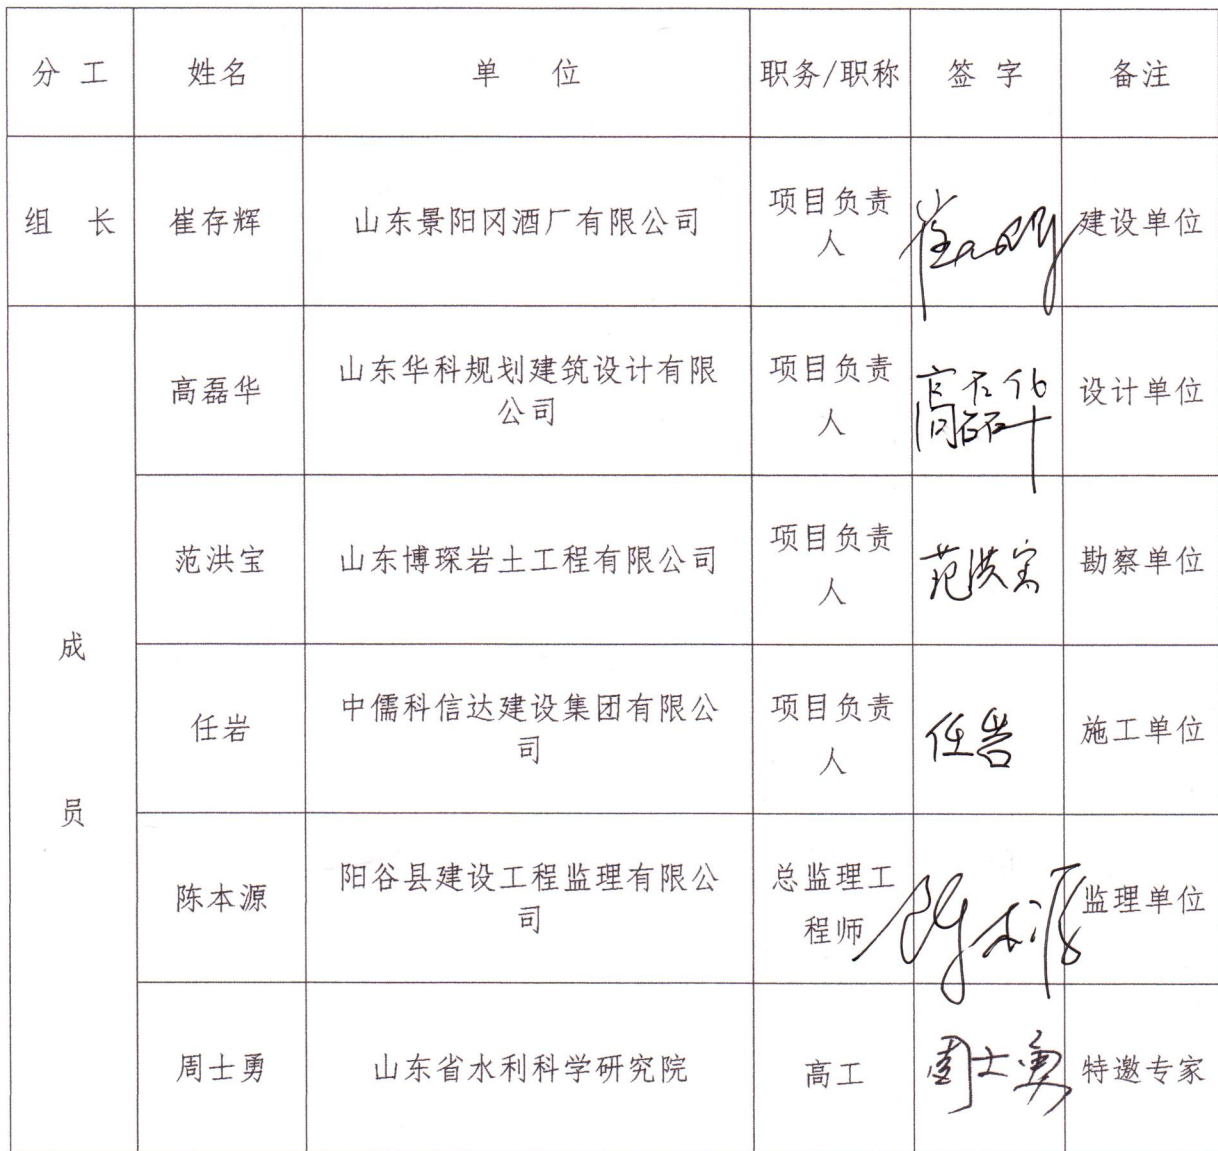 分 工 姓名 单 位 职务/职称 签 字 备注
组 长 崔存辉 山东景阳冈酒厂有限公司 项目负责
人 崔存辉 建设单位
成
员
高磊华 山东华科规划建筑设计有限
公司 项目负责
人 高磊华 设计单位
范洪宝 山东博琛岩土工程有限公司 项目负责
人 范洪宝 勘察单位
任岩 中儒科信达建设集团有限公
司 项目负责
人 任岩 施工单位
陈本源 阳谷县建设工程监理有限公
司 总监理工
程师 陈本源 监理单位
周士勇 山东省水利科学研究院 高工 周士勇 特邀专家